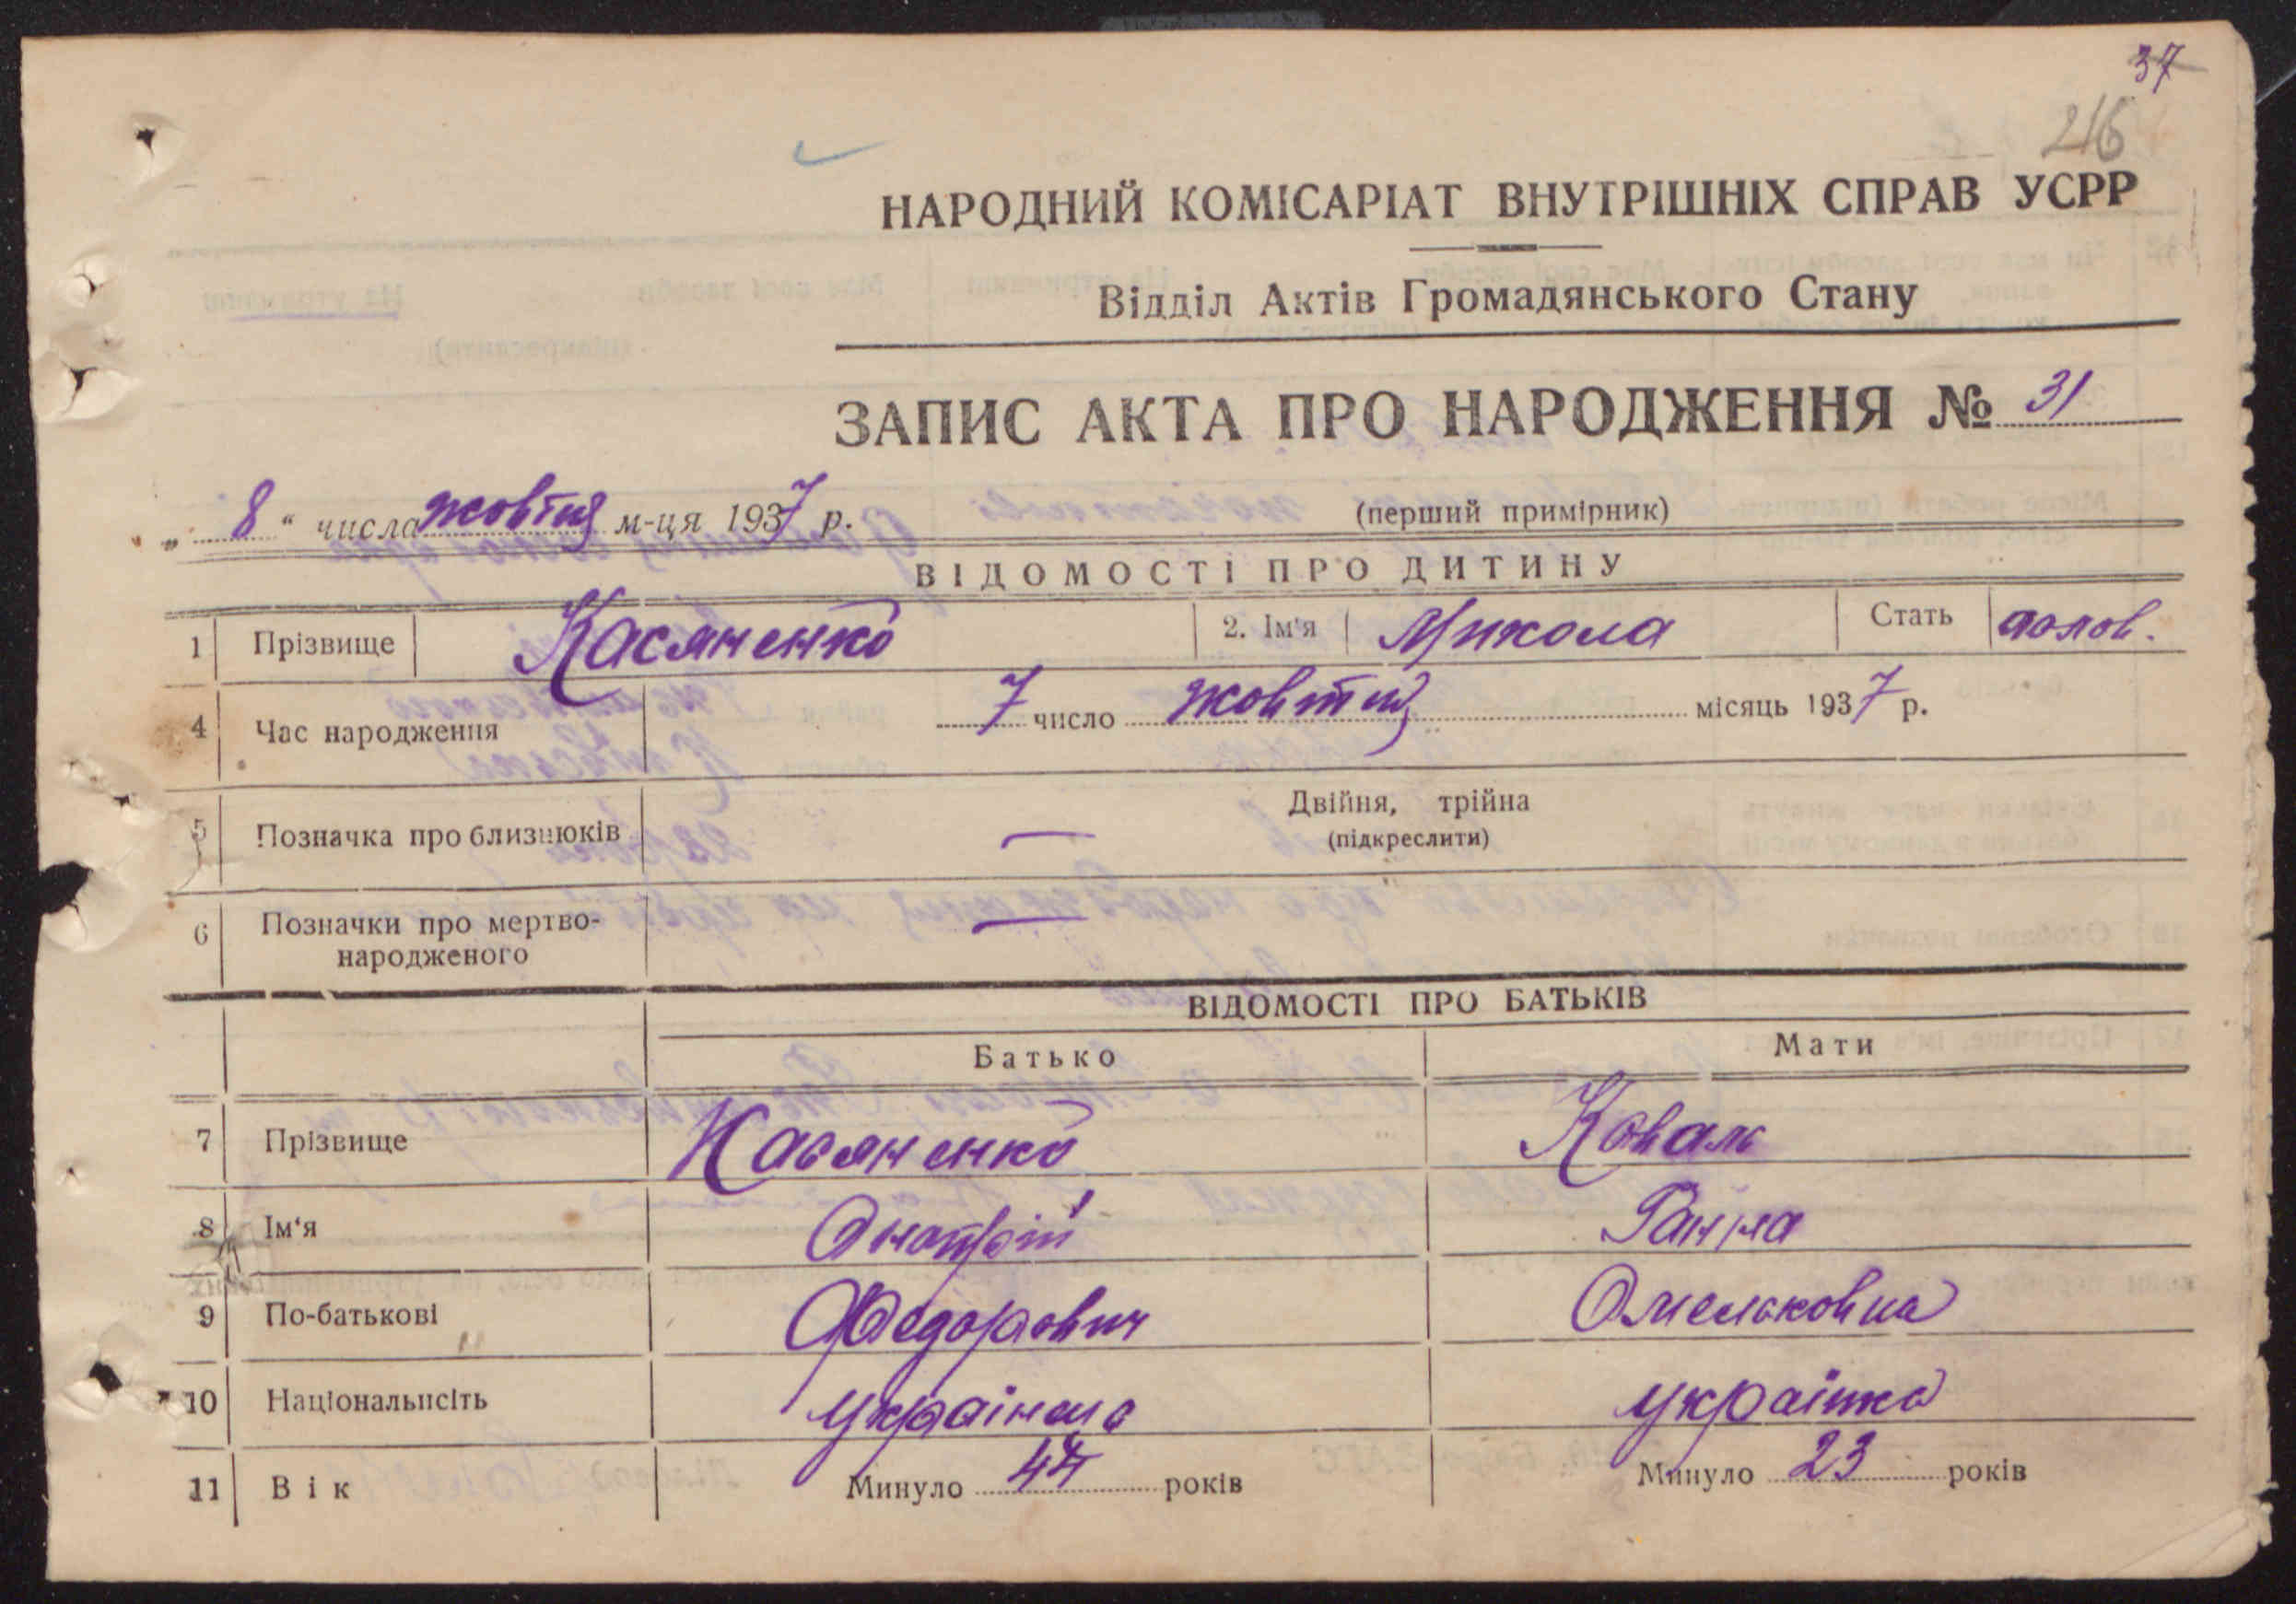 37
216
НАРОДНИЙ КОМІСАРІАТ ВНУТРІШНІХ СПРАВ УСРР
Відділ Актів Громадянського Стану
ЗАПИС АКТА ПРО НАРОДЖЕННЯ № 31
„ 8 “ числа жовтня м-ця 1937 р. (перший примірник)
ВІДОМОСТІ ПРО ДИТИНУ
1 Прізвище Касяненко 2. Ім'я Микола Стать чолов.
4 Час народження 7 число жовтня місяць 1937 р.
5 Позначка про близнюків — Двійня, трійна
(підкреслити)
6 Позначки про мертво-
народженого —
ВІДОМОСТІ ПРО БАТЬКІВ
Батько Мати
7 Прізвище Касяненко Коваль
8 Ім'я Онопрій Ганна
9 По-батькові Федорович Омельковна
10 Національнсіть українець українка
11 Вік Минуло 44 років Минуло 23 років